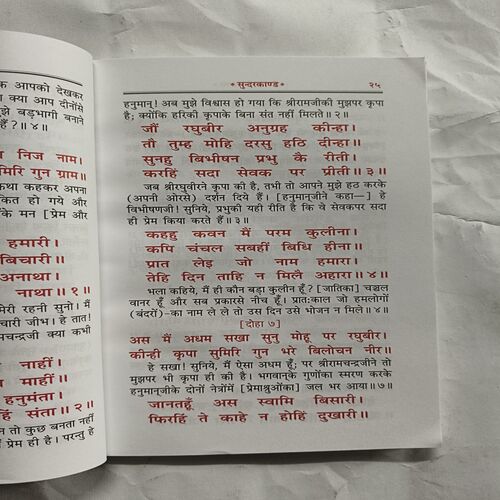 क आपको देखकर
क्या आप दीनोंसे
बड़भागी बनाने
हैं ?॥ ४॥
निज नाम।
मिरि गुन ग्राम॥
कथा कहकर अपना
कित हो गये और
के मन [प्रेम और
हमारी।
बिचारी॥
अनाथा।
नाथा॥ १॥
मेरी रहनी सुनो। मैं
चारी जीभ। हे तात!
मचन्द्रजी क्या कभी
नाहीं।
माहीं॥
हनुमंता।
हिं संता॥ २॥
न तो कुछ बनता नहीं
प्रेम ही है। परन्तु हे
* सुन्दरकाण्ड * २५
हनुमान्! अब मुझे विश्वास हो गया कि श्रीरामजीकी मुझपर कृपा
है; क्योंकि हरिकी कृपाके बिना संत नहीं मिलते॥ २॥
जौं रघुबीर अनुग्रह कीन्हा।
तौ तुम्ह मोहि दरसु हठि दीन्हा॥
सुनहु बिभीषन प्रभु कै रीती।
करहिं सदा सेवक पर प्रीती॥ ३॥
जब श्रीरघुवीरने कृपा की है, तभी तो आपने मुझे हठ करके
(अपनी ओरसे) दर्शन दिये हैं। [हनुमान्‌जीने कहा—] हे
विभीषणजी! सुनिये, प्रभुकी यही रीति है कि वे सेवकपर सदा
ही प्रेम किया करते हैं॥ ३॥
कहहु कवन मैं परम कुलीना।
कपि चंचल सबहीं बिधि हीना॥
प्रात लेइ जो नाम हमारा।
तेहि दिन ताहि न मिलै अहारा॥ ४॥
भला कहिये, मैं ही कौन बड़ा कुलीन हूँ? [जातिका] चञ्चल
वानर हूँ और सब प्रकारसे नीच हूँ। प्रातःकाल जो हमलोगों
(बंदरों)-का नाम ले ले तो उस दिन उसे भोजन न मिले॥ ४॥
[दोहा ७]
अस मैं अधम सखा सुनु मोहू पर रघुबीर।
कीन्ही कृपा सुमिरि गुन भरे बिलोचन नीर॥
हे सखा! सुनिये, मैं ऐसा अधम हूँ; पर श्रीरामचन्द्रजीने तो
मुझपर भी कृपा ही की है। भगवान्‌के गुणोंका स्मरण करके
हनुमान्‌जीके दोनों नेत्रोंमें [प्रेमाश्रुओंका] जल भर आया॥ ७॥
जानतहूँ अस स्वामि बिसारी।
फिरहिं ते काहे न होहिं दुखारी॥